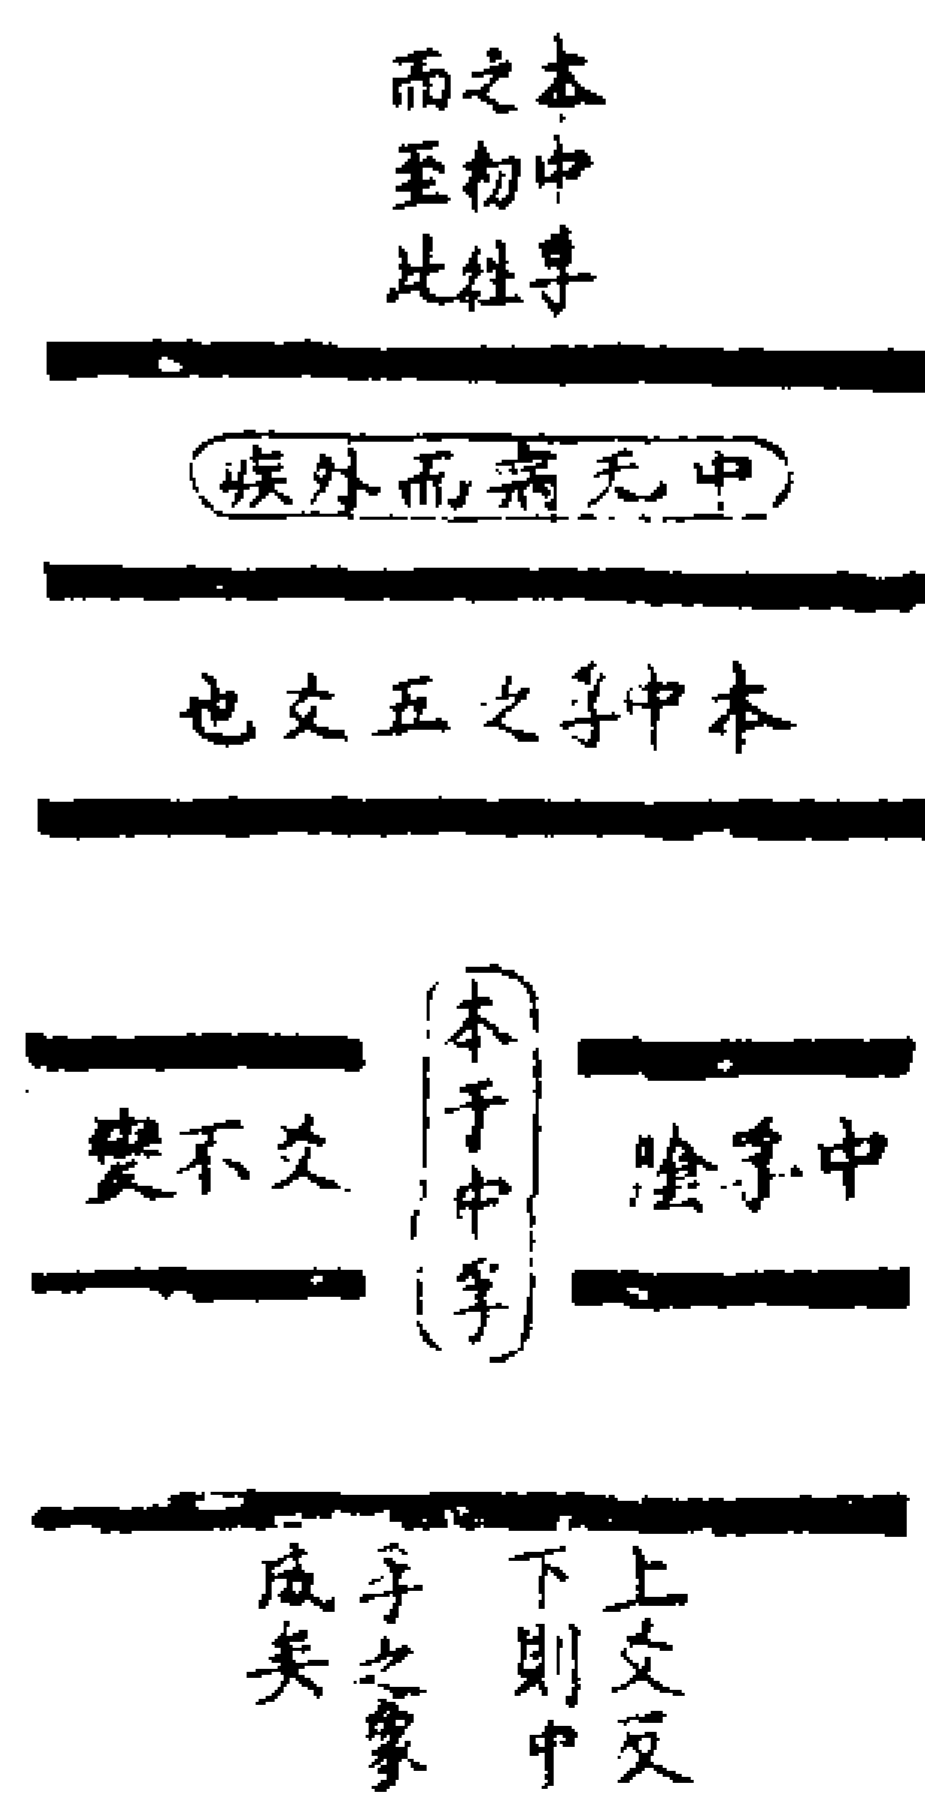 本中孚
之初往
而至此
中无病而外疾
本中孚之五爻也
中孚陰
本于中孚
爻不變
上爻反
下則中
孚之象
成矣